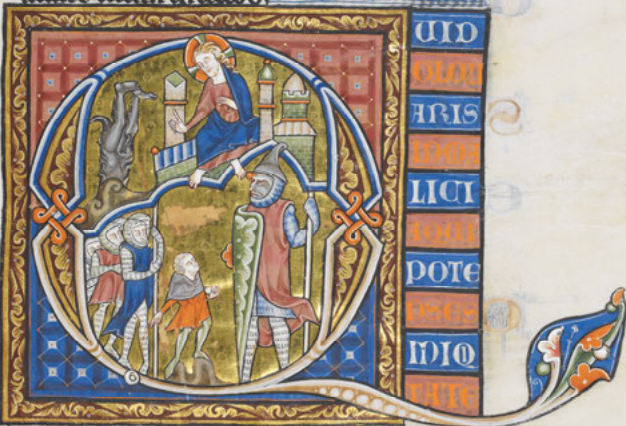 QUID
GLORI
ARIS
INMA
LICI
AQUI
POTE
NSES
INIQ
TATE